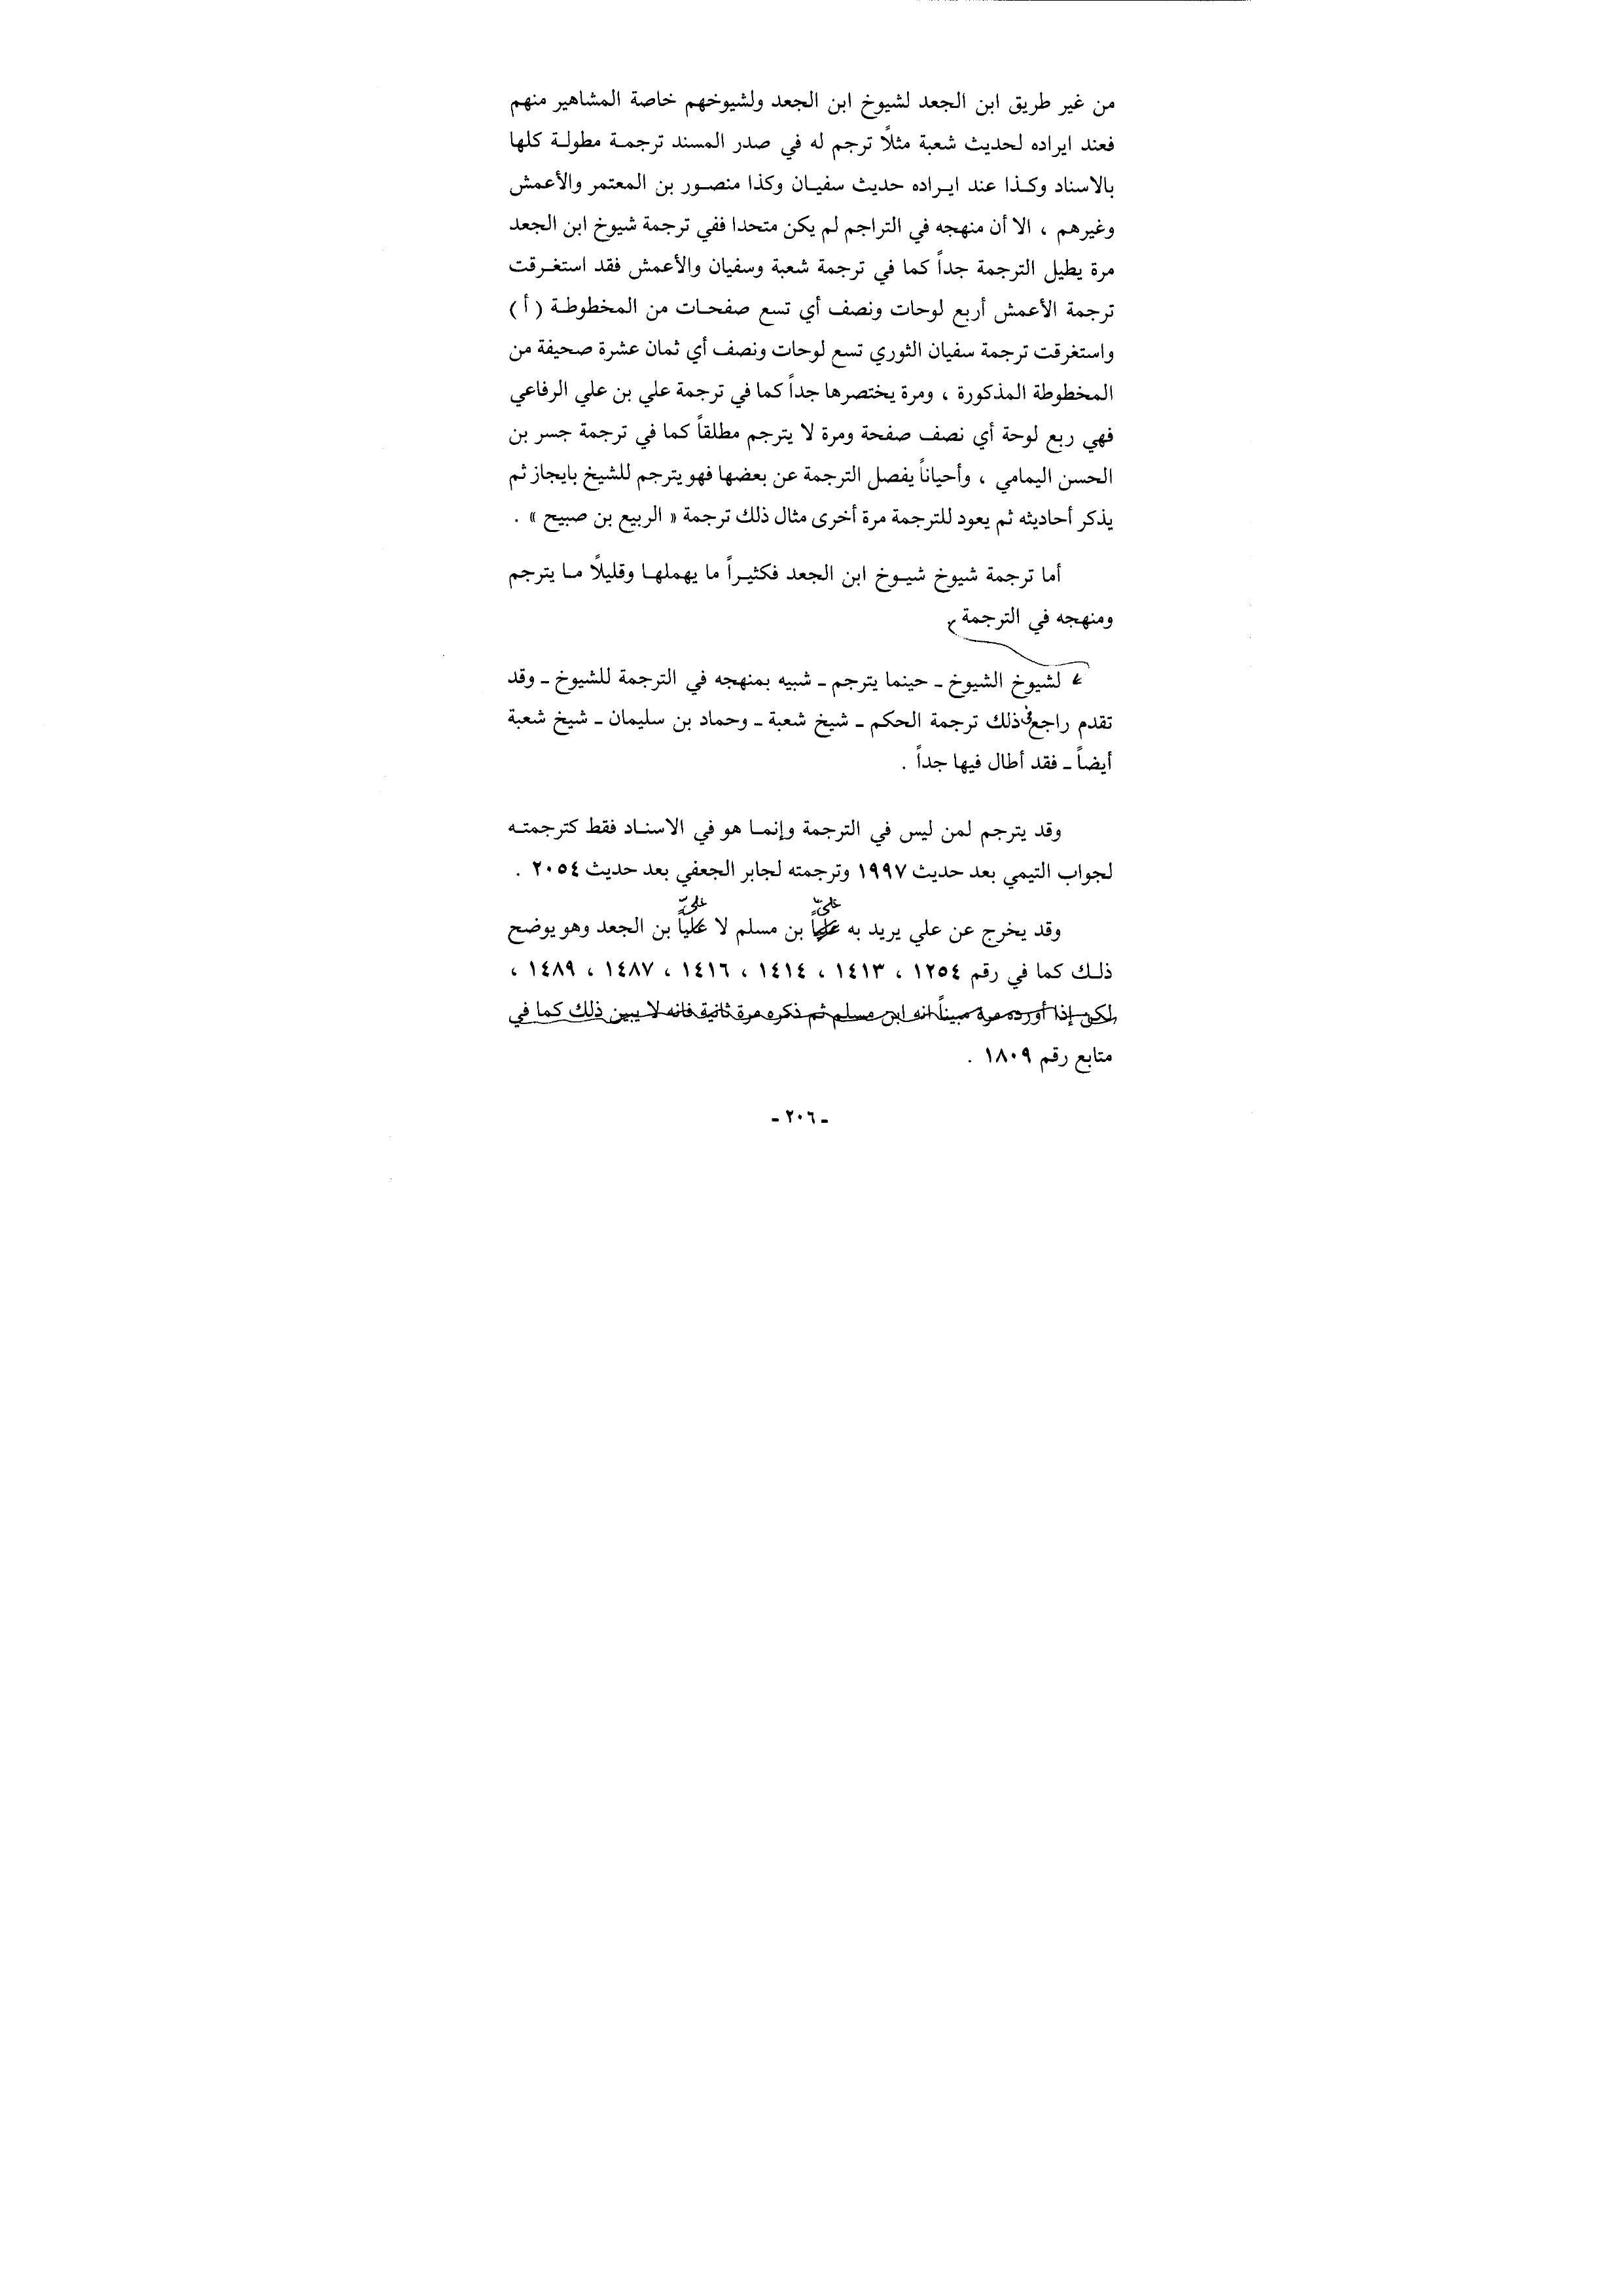 من غير طريق ابن الجعد لشيوخ ابن الجعد ولشيوخهم خاصة المشاهير منهم
فعند ايراده لحديث شعبة مثلًا ترجم له في صدر المسند ترجمة مطولة كلها
بالاسناد وكذا عند ايراده حديث سفيان وكذا منصور بن المعتمر والأعمش
وغيرهم ، الا أن منهجه في التراجم لم يكن متحدا ففي ترجمة شيوخ ابن الجعد
مرة يطيل الترجمة جداً كما في ترجمة شعبة وسفيان والأعمش فقد استغرقت
ترجمة الأعمش أربع لوحات ونصف أي تسع صفحات من المخطوطة ( أ )
واستغرقت ترجمة سفيان الثوري تسع لوحات ونصف أي ثمان عشرة صحيفة من
المخطوطة المذكورة ، ومرة يختصرها جداً كما في ترجمة علي بن علي الرفاعي
فهي ربع لوحة أي نصف صفحة ومرة لا يترجم مطلقاً كما في ترجمة جسر بن
الحسن اليمامي ، وأحياناً يفصل الترجمة عن بعضها فهو يترجم للشيخ بايجاز ثم
يذكر أحاديثه ثم يعود للترجمة مرة أخرى مثال ذلك ترجمة « الربيع بن صبيح » .
أما ترجمة شيوخ شيوخ ابن الجعد فكثيراً ما يهملها وقليلًا ما يترجم
ومنهجه في الترجمة
لشيوخ الشيوخ ـ حينما يترجم ـ شبيه بمنهجه في الترجمة للشيوخ ـ وقد
تقدم راجع في ذلك ترجمة الحكم ـ شيخ شعبة ـ وحماد بن سليمان ـ شيخ شعبة
أيضاً ـ فقد أطال فيها جداً .
وقد يترجم لمن ليس في الترجمة وإنما هو في الاسناد فقط كترجمته
لجواب التيمي بعد حديث ١٩٩٧ وترجمته لجابر الجعفي بعد حديث ٢٠٥٤ .
عليّ عليّ
وقد يخرج عن علي يريد به علياً بن مسلم لا علياً بن الجعد وهو يوضح
ذلك كما في رقم ١٢٥٤ ، ١٤١٣ ، ١٤١٤ ، ١٤١٦ ، ١٤٨٧ ، ١٤٨٩ ،
لكن إذا أورده مرة مبيناً انه ابن مسلم ثم ذكره مرة ثانية فانه لا يبين ذلك كما في
متابع رقم ١٨٠٩ .
ـ ٢٠٦ ـ